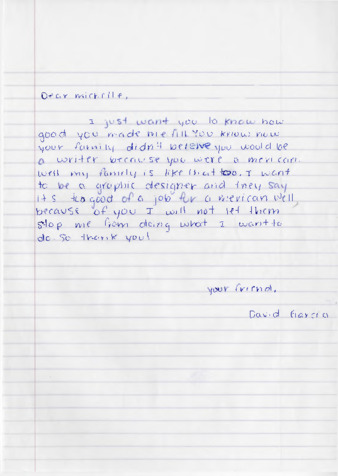 Dear michelle,
I just want you to know how
good you made me fill. You know how
your family didn't beleive you would be
a writer because you were a mexican.
Well my family is like that too. I want
to be a graphic designer and they say
it's to good of a job for a mexican. Well,
because of you I will not let them
stop me from doing what I want to
do. So thank you!
your friend,
David Garcia